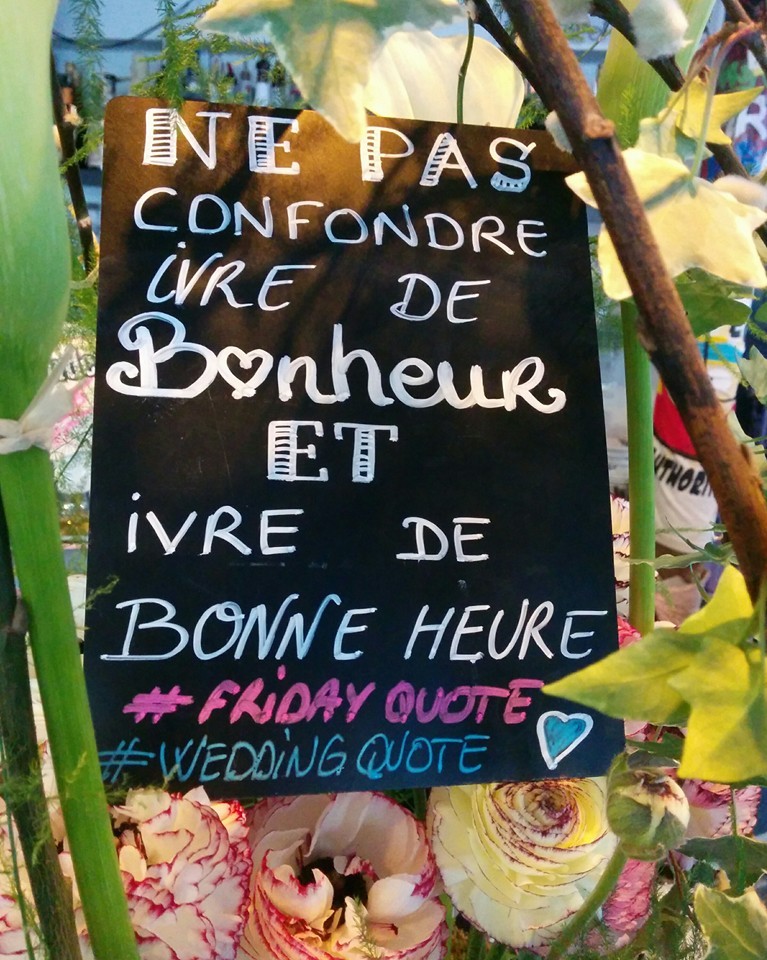 NE PAS
CONFONDRE
iVRE DE
Bonheur
ET
iVRE DE
BONNE HEURE
#FRiDAY QUOTE
#WEDDiNG QUOTE